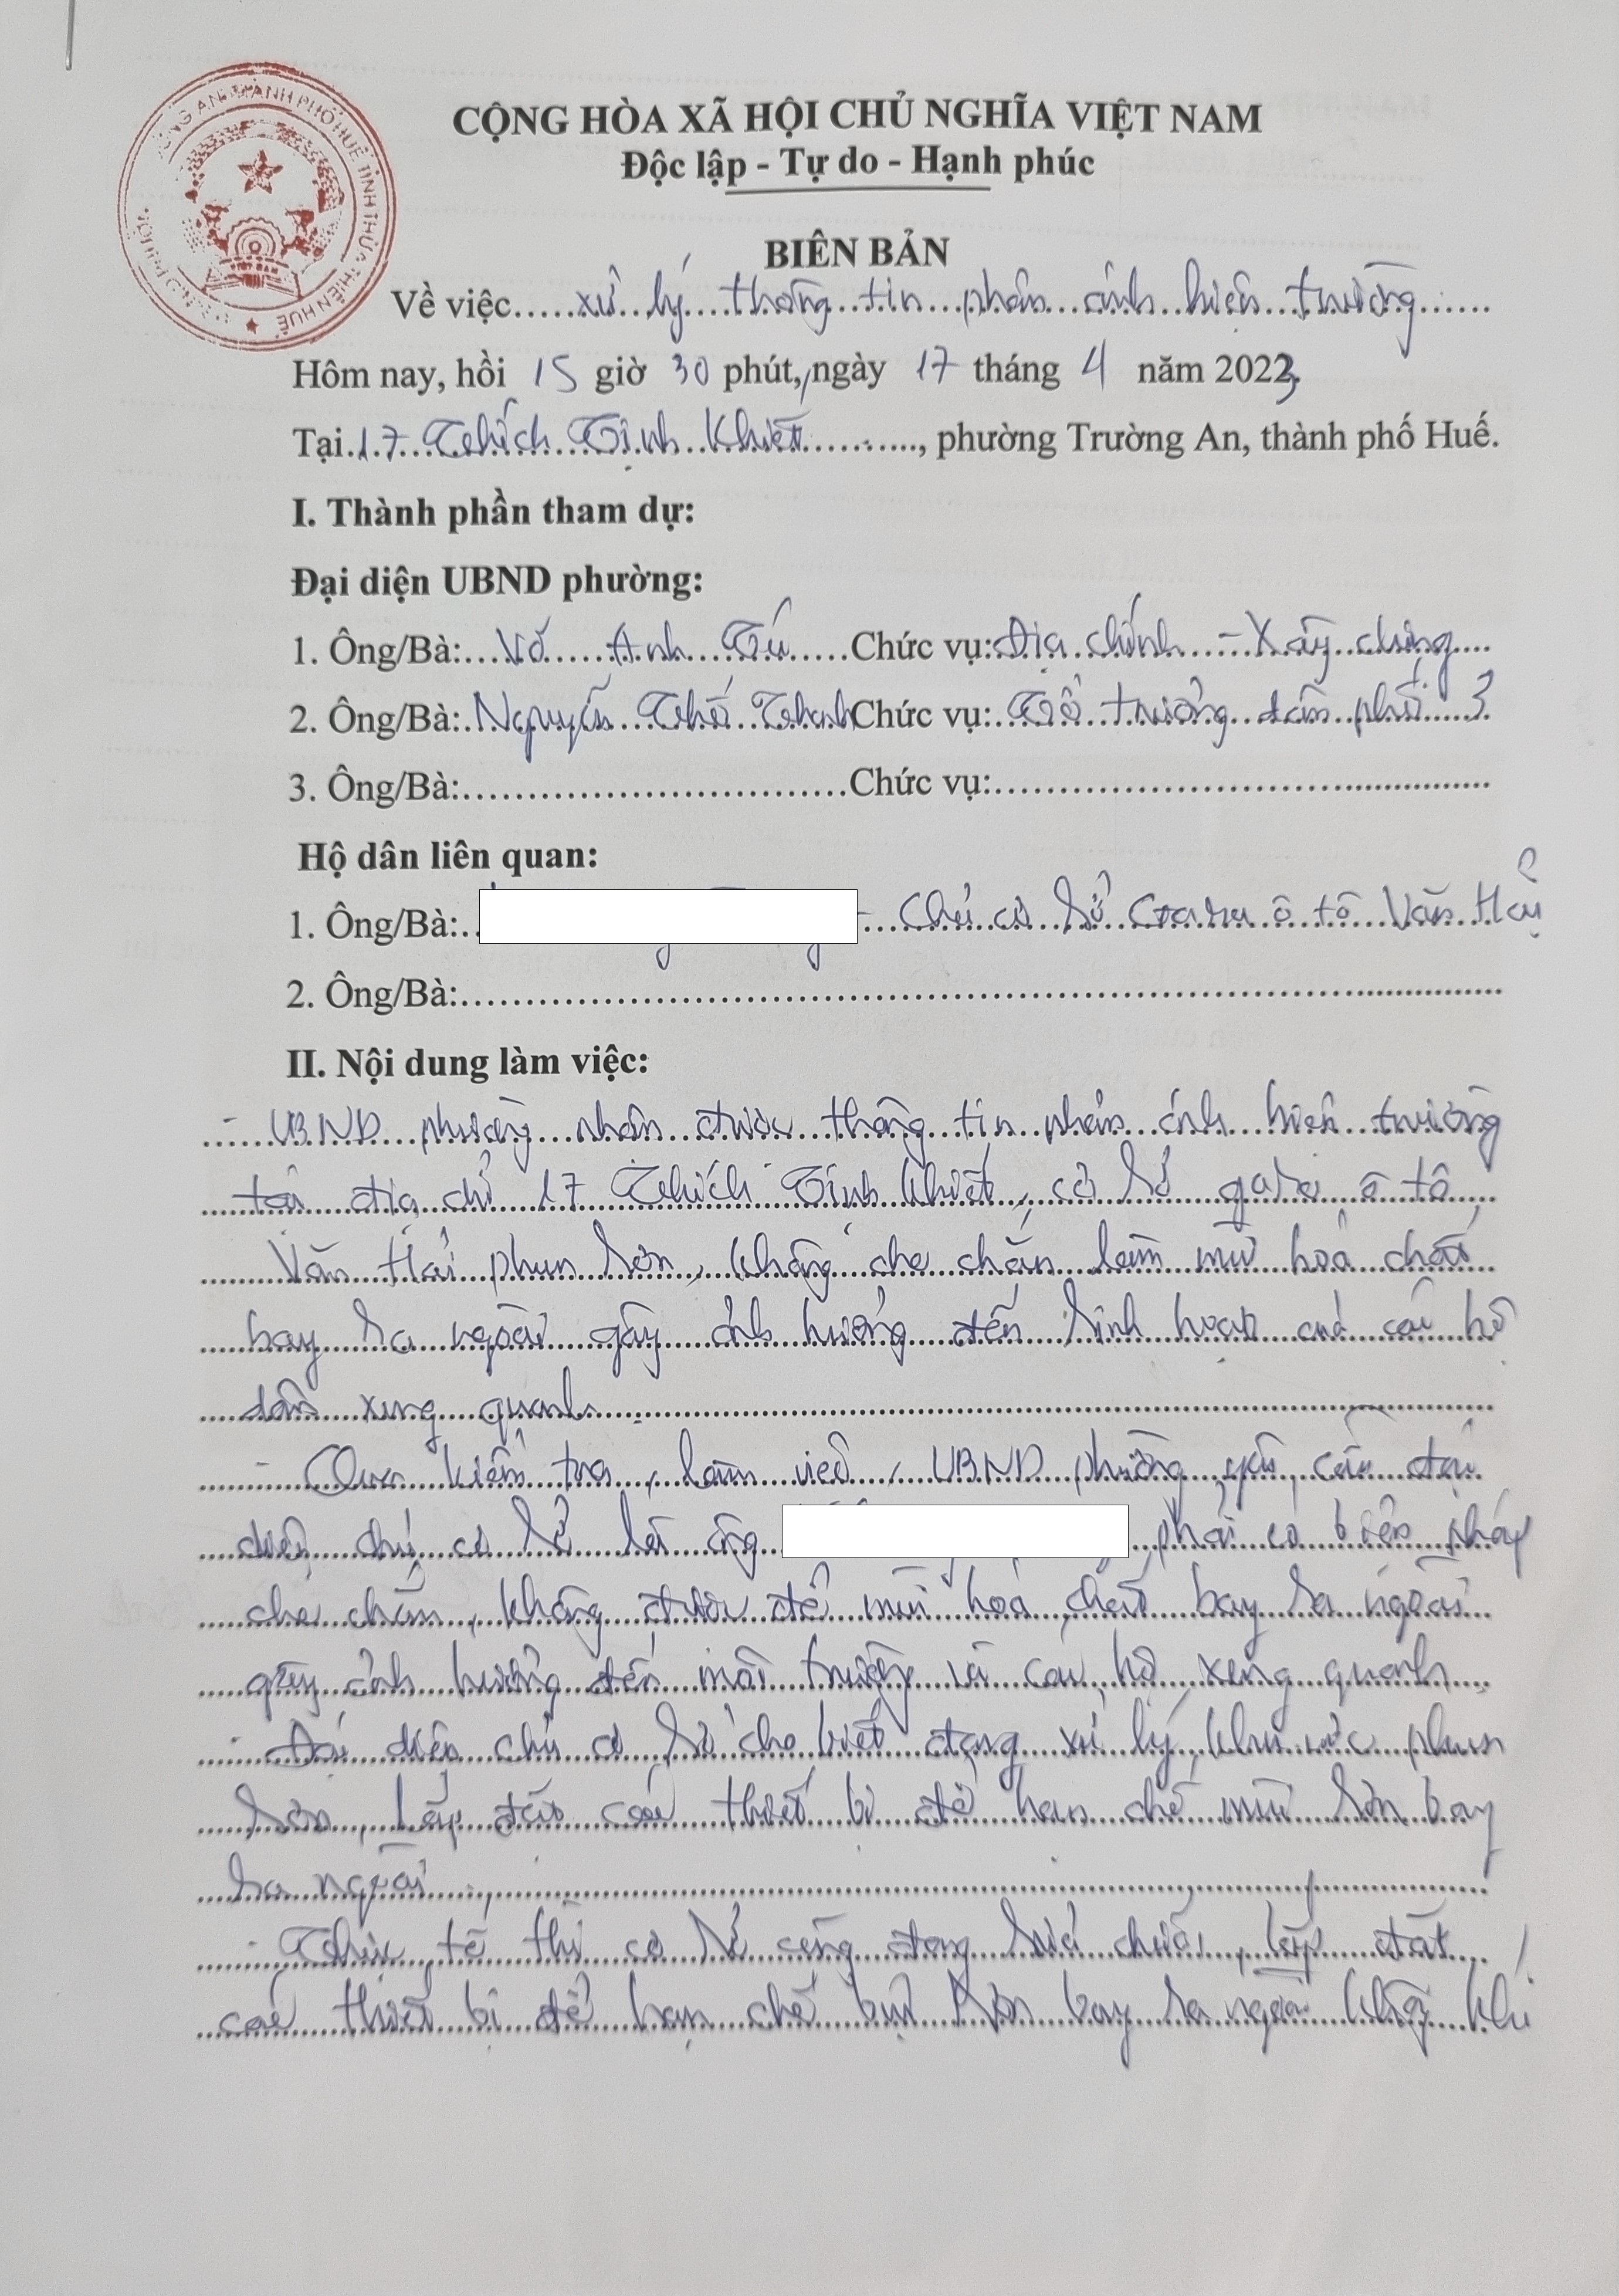 CÔNG AN THÀNH PHỐ HUẾ TỈNH THỪA THIÊN HUẾ
CỘNG HÒA XÃ HỘI CHỦ NGHĨA VIỆT NAM
Độc lập - Tự do - Hạnh phúc
BIÊN BẢN
Về việc.....xử lý thông tin phản ánh hiện trường......
Hôm nay, hồi 15 giờ 30 phút, ngày 17 tháng 4 năm 2023
Tại 17 Thích Tịnh Khiết, phường Trường An, thành phố Huế.
I. Thành phần tham dự:
Đại diện UBND phường:
1. Ông/Bà: Võ Anh Tú Chức vụ: Địa chính - Xây dựng
2. Ông/Bà: Nguyễn Thế Thanh Chức vụ: Tổ trưởng dân phố 3
3. Ông/Bà:.............................. Chức vụ:..............................
Hộ dân liên quan:
1. Ông/Bà: - Chủ cơ sở Gara ô tô Văn Hải
2. Ông/Bà:..............................
II. Nội dung làm việc:
- UBND phường nhận được thông tin phản ánh hiện trường
tại địa chỉ 17 Thích Tịnh Khiết, cơ sở gara ô tô
Văn Hải phun sơn, không che chắn làm mùi hoá chất
bay ra ngoài gây ảnh hưởng đến sinh hoạt của các hộ
dân xung quanh.
- Qua kiểm tra, làm việc, UBND phường yêu cầu đại
diện chủ cơ sở là ông phải có biện pháp
che chắn, không được để mùi hoá chất bay ra ngoài
gây ảnh hưởng đến môi trường và các hộ xung quanh.
- Đại diện chủ cơ sở cho biết đang xử lý khu vực phun
sơn, lắp đặt các thiết bị để hạn chế mùi sơn bay
ra ngoài.
- Thực tế thì cơ sở cũng đang sửa chữa, lắp đặt
các thiết bị để hạn chế bụi sơn bay ra ngoài không khí